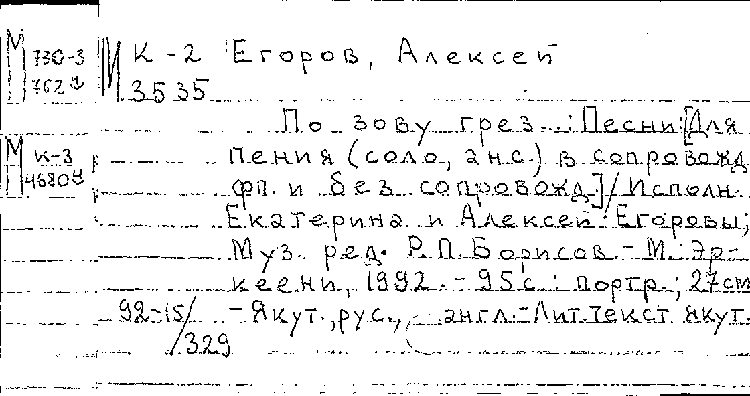 М 730-3
762
И К-2 Егоров, Алексей
3535
По зову грез...: Песни: [Для
М К-3
пения (соло, анс.) в сопровожд.
фп. и без сопровожд.] / Исполн.
Екатерина и Алексей Егоровы;
Муз. ред. Р.П. Борисов. - М.: Эр-
кеени, 1992. - 95 с.: портр.; 27 см
92-15/
329
- Якут., рус., англ. - Лит. текст якут.